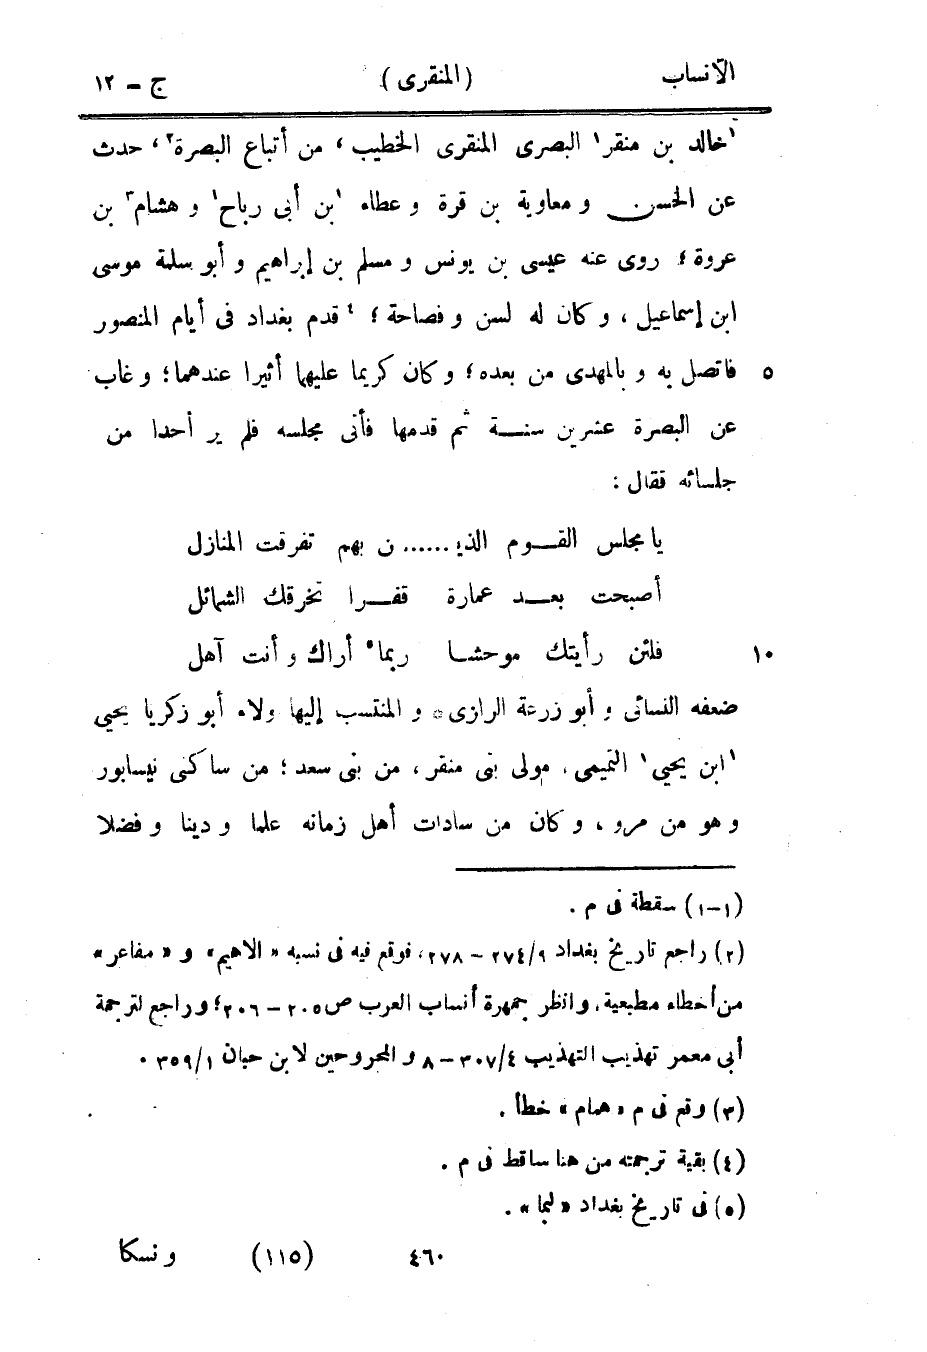 الآنساب (المنقرى) ج - ١٢
١خالد بن منقر١ البصرى المنقرى الخطيب، من أتباع البصرة٢، حدث
عن الحسن و معاوية بن قرة و عطاء ١بن أبى رباح١ و هشام٣ بن
عروة؛ روى عنه عيسى بن يونس و مسلم بن إبراهيم و أبو سلمة موسى
ابن إسماعيل، و كان له لسن و فصاحة؛ ٤قدم بغداد فى أيام المنصور
فاتصل به و بالمهدى من بعده؛ و كان كريما عليهما أثيرا عندهما؛ و غاب ٥
عن البصرة عشرين سنة ثم قدمها فأتى مجلسه فلم ير أحدا من
جلسائه فقال :
يا مجلس القوم الذيـ......ن بهم تفرقت المنازل
أصبحت بعد عمارة قفرا تخرقك الشمائل
فلئن رأيتك موحشا ربما٥ أراك و أنت آهل ١٠
ضعفه النسائى و أبو زرعة الرازى* و المنتسب إليها ولاء أبو زكريا يحيى
١ابن يحيى١ التميمى، مولى بنى منقر، من بنى سعد؛ من ساكنى نيسابور
و هو من مرو، و كان من سادات أهل زمانه علما و دينا و فضلا
(١-١) سقطة فى م .
(٢) راجع تاريخ بغداد ٢٧٤/٩ - ٢٧٨، فوقع فيه فى نسبه « الاهيم» و « مفاعر»
من أخطاء مطبعية، وانظر جمهرة أنساب العرب ص ٢٠٥ - ٢٠٦؛ و راجع لترجمة
أبى معمر تهذيب التهذيب ٣٠٧/٤ - ٨ و المجروحين لابن حبان ٣٥٩/١ .
(٣) وقع فى م «همام» خطأ .
(٤) بقية ترجمته من هنا ساقط فى م .
(٥) فى تاريخ بغداد «لبما» .
٤٦٠ (١١٥) و نسكا